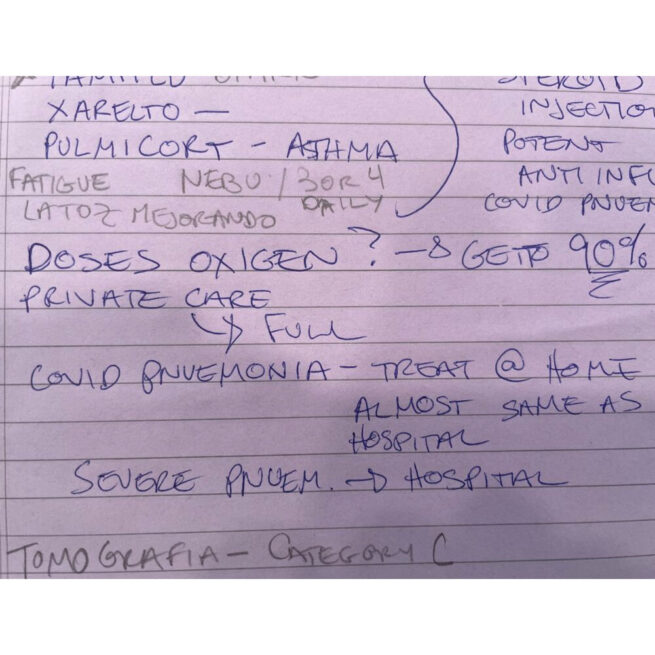 STEROID
XARELTO — INJECTIO
PULMICORT - ASTHMA POTENT
FATIGUE NEBU / 3 OR 4 ANTI INFL
LATOZ MEJORANDO DAILY COVID PNUEM
DOSES OXIGEN ? → 8 GET TO 90%
PRIVATE CARE
↳ FULL
COVID PNUEMONIA - TREAT @ HOME
ALMOST SAME AS
HOSPITAL
SEVERE PNUEM. → HOSPITAL
TOMOGRAFIA - CATEGORY C